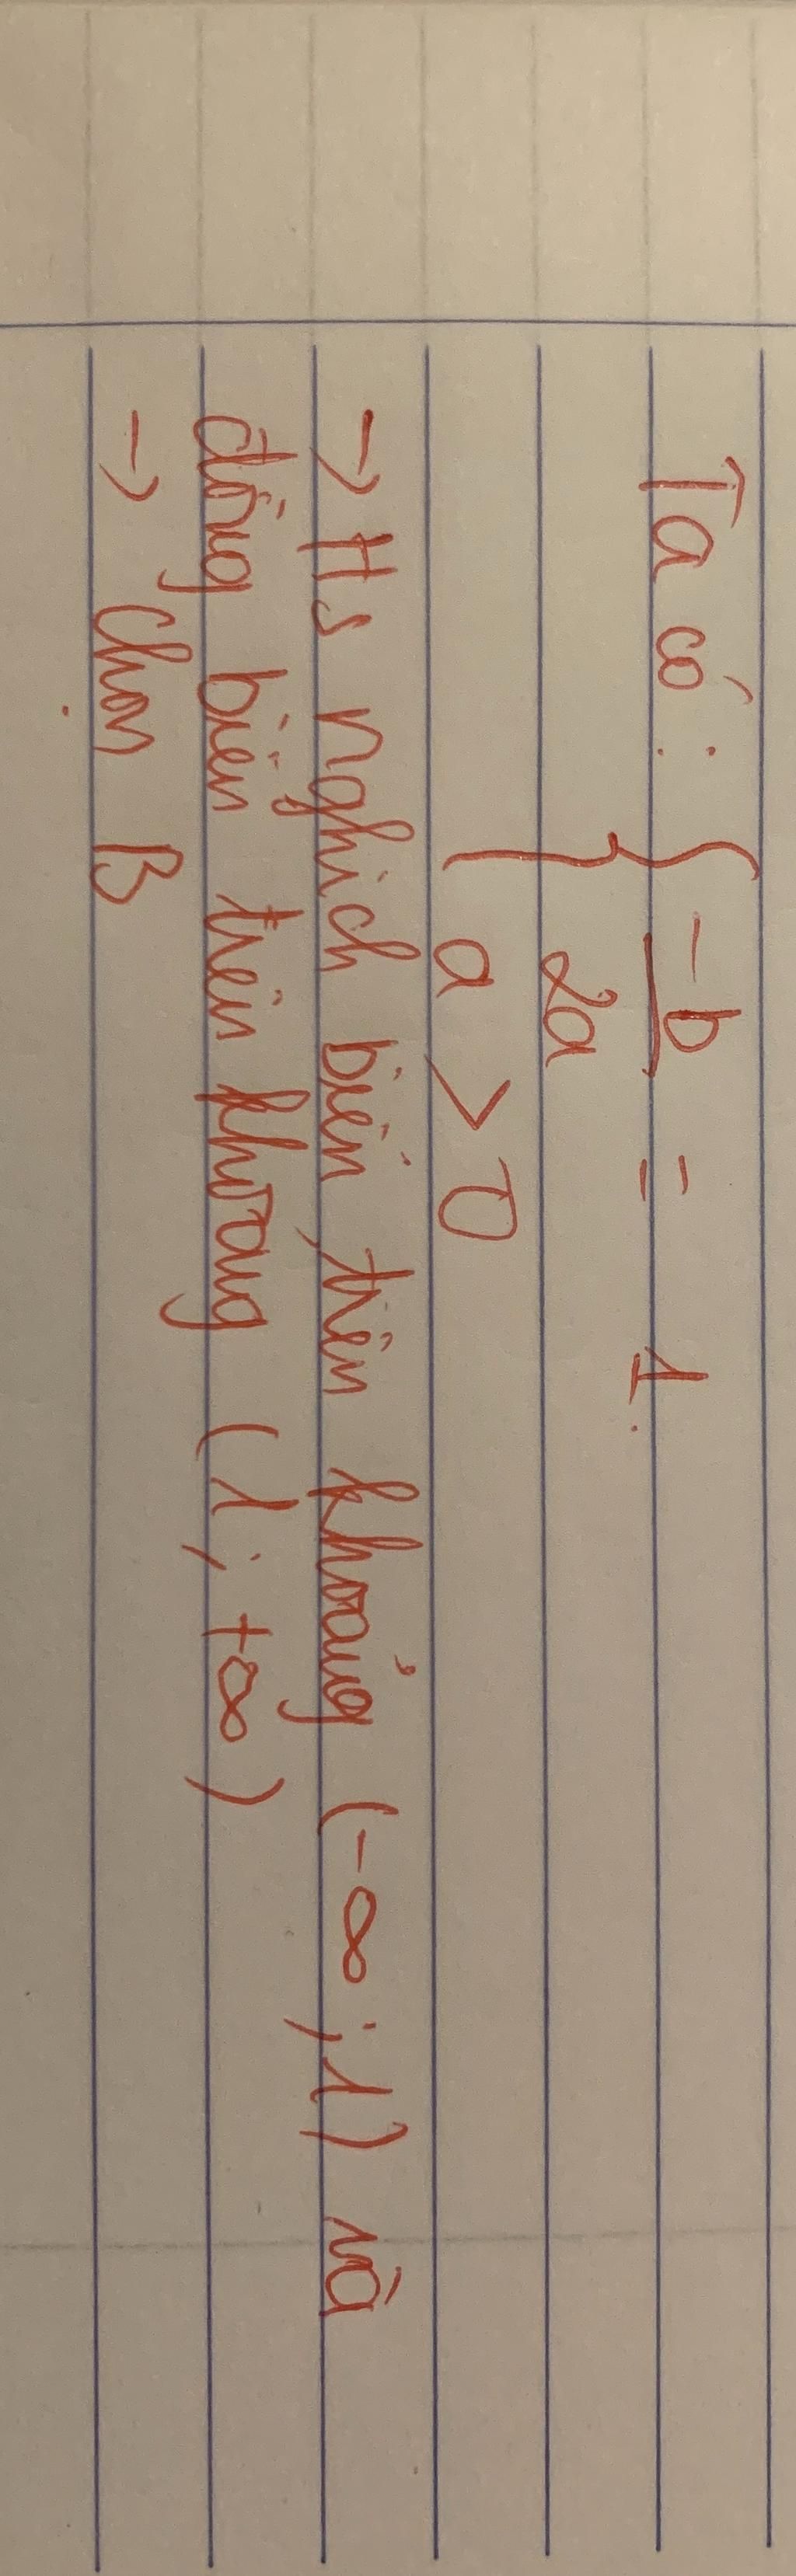 Ta có : { -b/2a = 1.
a > 0
→ Hs nghịch biến trên khoảng (-∞ ; 1) và
đồng biến trên khoảng (1 ; +∞)
→ Chọn B